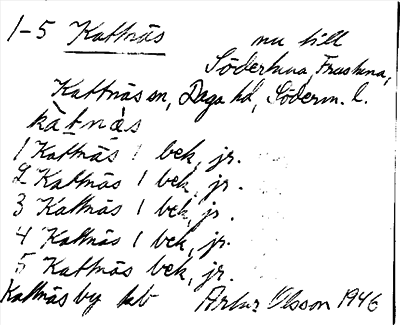 1-5 Kattnäs
nu till
Södertuna, Frustuna,
Kattnäs sn, Daga hd, Söderm. l.
kàtnä̀s
1 Kattnäs 1 bek, jr.
2 Kattnäs 1 bek, jr.
3 Kattnäs 1 bek, jr.
4 Kattnäs 1 bek, jr.
5 Kattnäs bek, jr.
Kattnäs by kab
Artur Olsson 1946